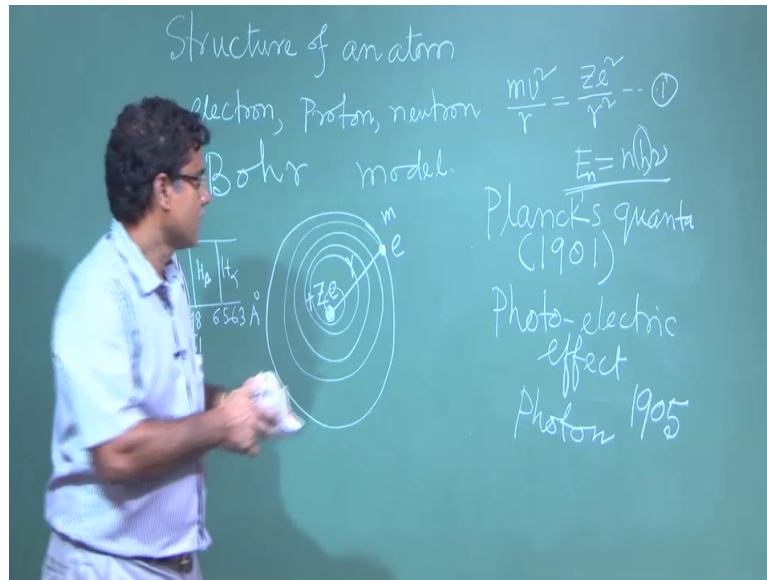 Structure of an atom
electron, Proton, neutron
Bohr model.
mv²/r = Ze²/r² -- ①
Eₙ = nhν
Planck's quanta
(1901)
Photo-electric
effect
Photon 1905
Hβ Hα
6563 Å
m
e
r
+Ze